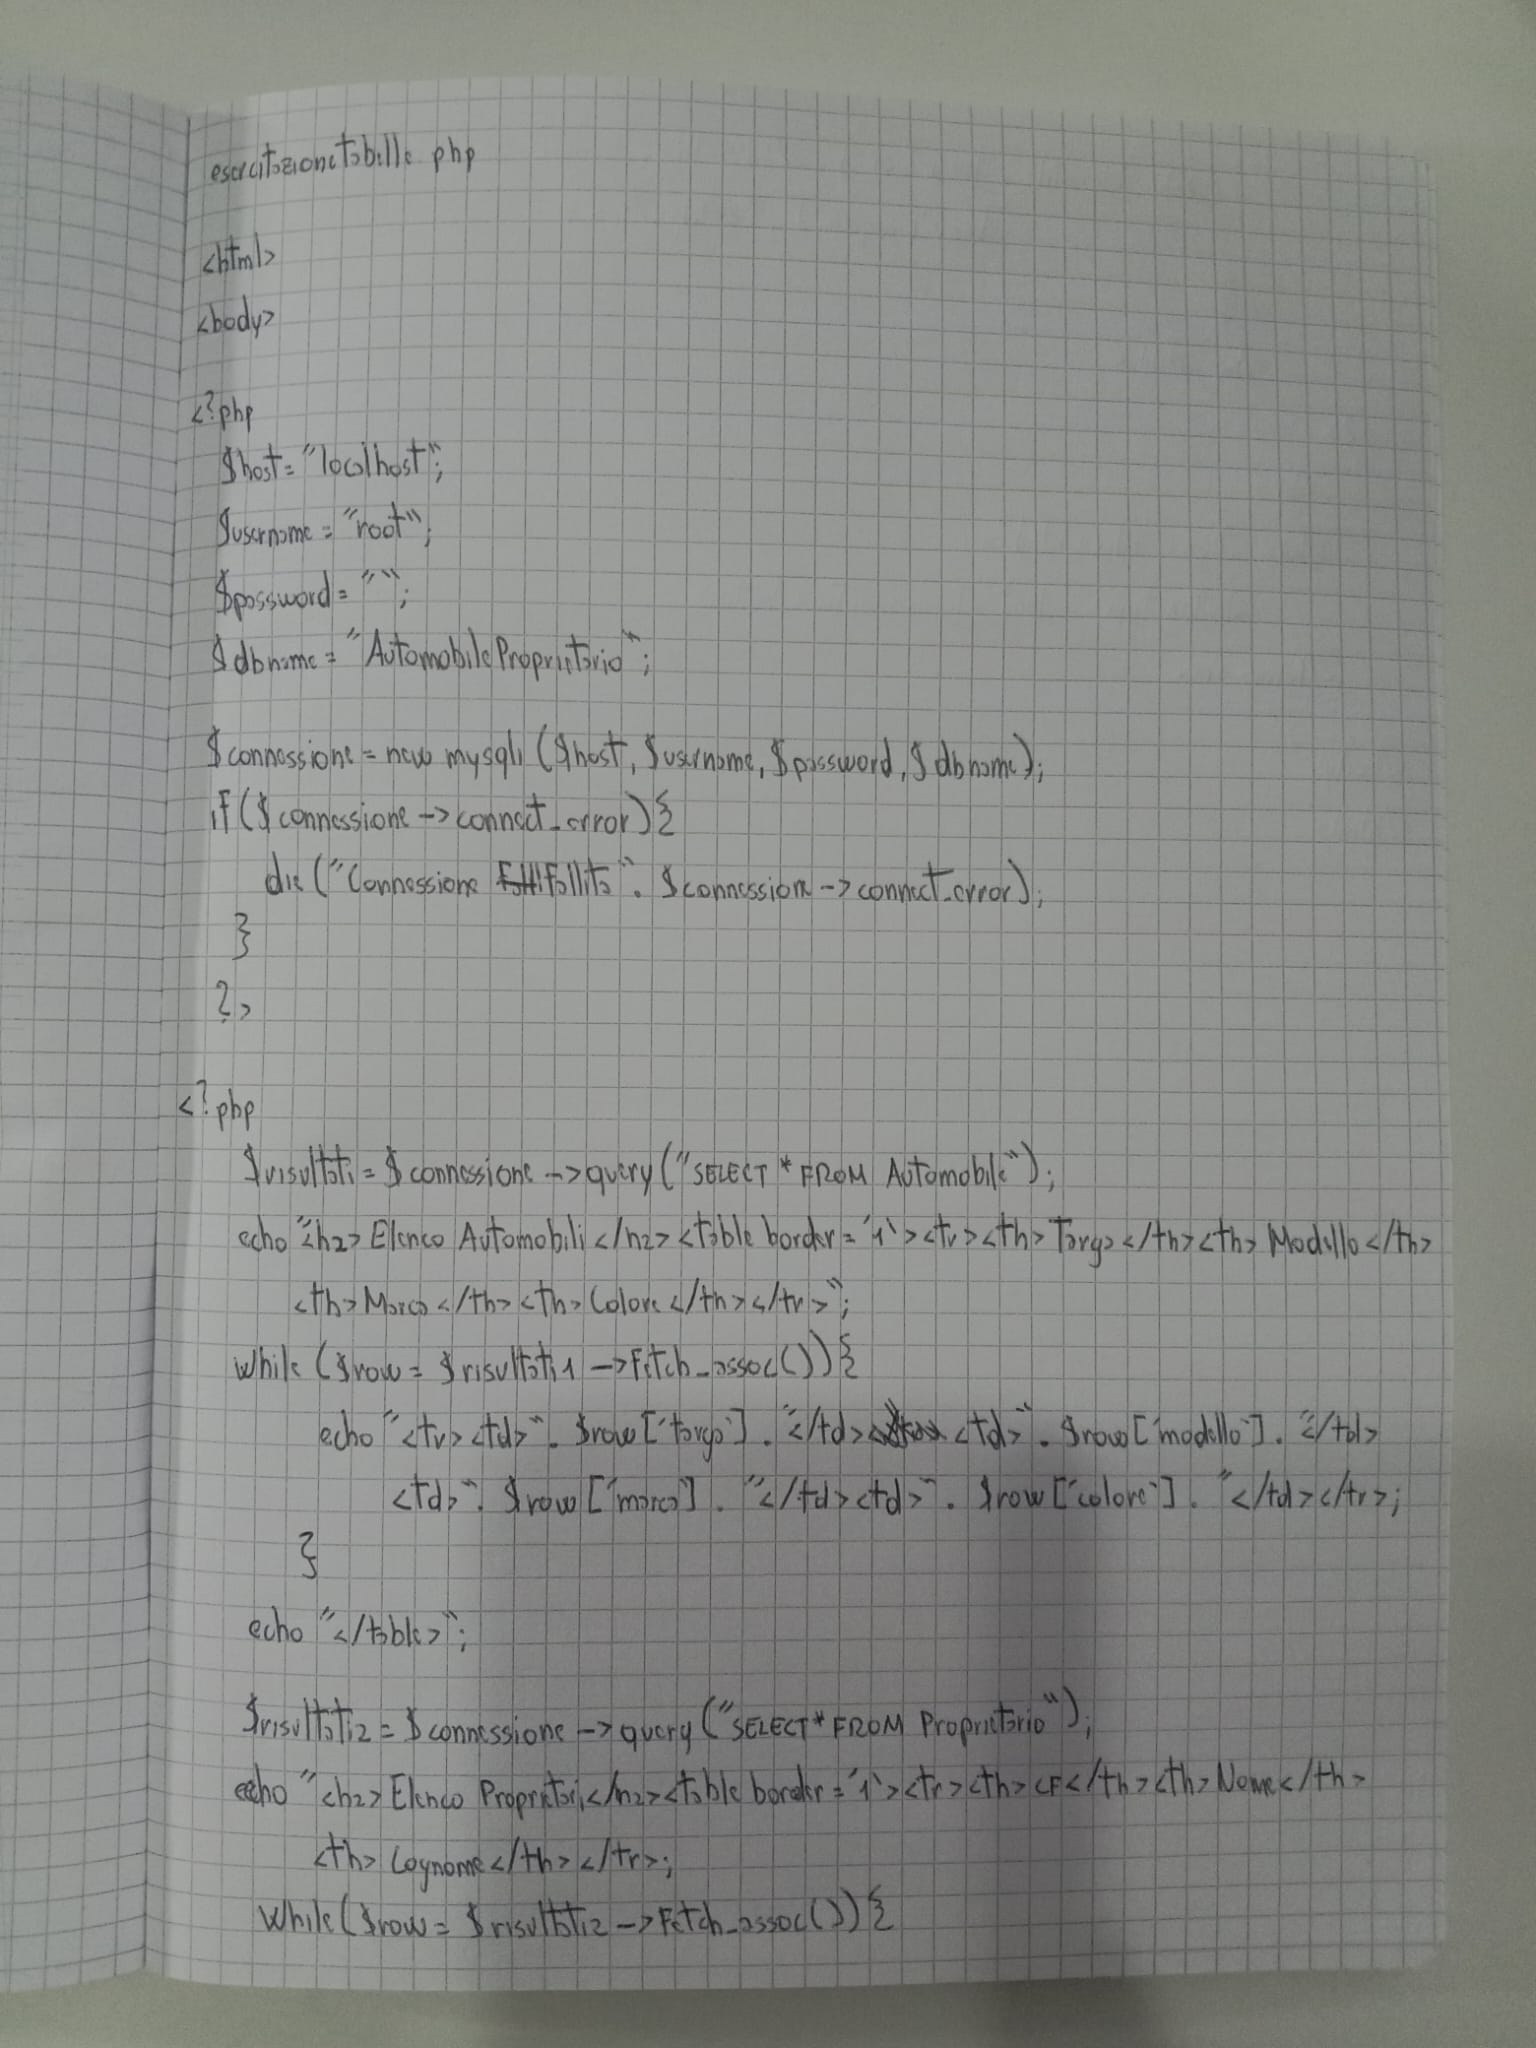 esercitazionetabelle php
<html>
<body>
<?php
$host= "localhost";
$username = "root";
$password = "";
$dbname = "AutomobileProprietario";
$connessione = new mysqli ($host, $username, $password, $dbname);
if ($connessione -> connect_error){
die ("Connessione fallita". $connessione -> connect_error);
}
?>
<?php
$risultati = $connessione -> query ("SELECT * FROM Automobile");
echo "<h2> Elenco Automobili </h2> <table border = '1'> <tr> <th> Targa </th> <th> Modello </th>
<th> Marca </th> <th> Colore </th> </tr>";
while ($row = $risultati1 -> fetch_assoc()){
echo "<tr> <td>". $row ['targa']. "</td> <td>". $row ['modello']. "</td>
<td>". $row ['marca']. "</td> <td>". $row ['colore']. "</td> </tr>;
}
echo "</table>";
$risultati2 = $connessione -> query ("SELECT * FROM Proprietario");
echo "<h2> Elenco Proprietari </h2> <table border = '1'> <tr> <th> CF </th> <th> Nome </th>
<th> Cognome </th> </tr>;
while ($row = $risultati2 -> fetch_assoc()){